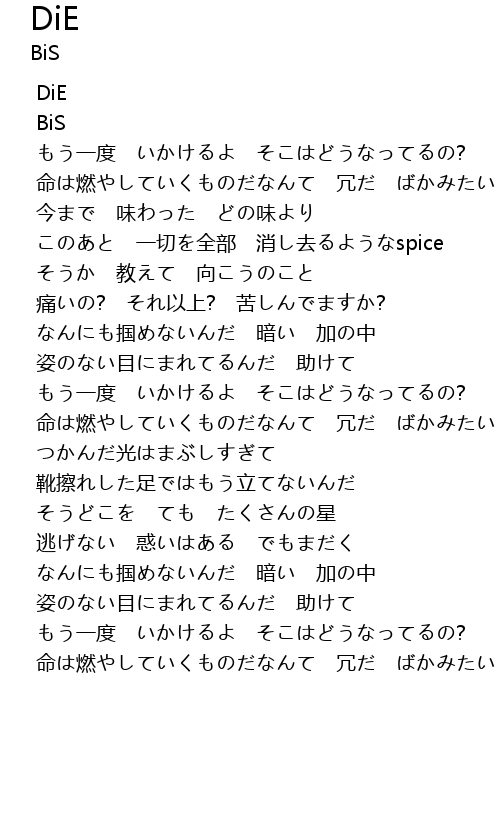 DiE
BiS
DiE
BiS
もう一度　いかけるよ　そこはどうなってるの?
命は燃やしていくものだなんて　冗だ　ばかみたい
今まで　味わった　どの味より
このあと　一切を全部　消し去るようなspice
そうか　教えて　向こうのこと
痛いの?　それ以上?　苦しんでますか?
なんにも掴めないんだ　暗い　加の中
姿のない目にまれてるんだ　助けて
もう一度　いかけるよ　そこはどうなってるの?
命は燃やしていくものだなんて　冗だ　ばかみたい
つかんだ光はまぶしすぎて
靴擦れした足ではもう立てないんだ
そうどこを　ても　たくさんの星
逃げない　惑いはある　でもまだく
なんにも掴めないんだ　暗い　加の中
姿のない目にまれてるんだ　助けて
もう一度　いかけるよ　そこはどうなってるの?
命は燃やしていくものだなんて　冗だ　ばかみたい